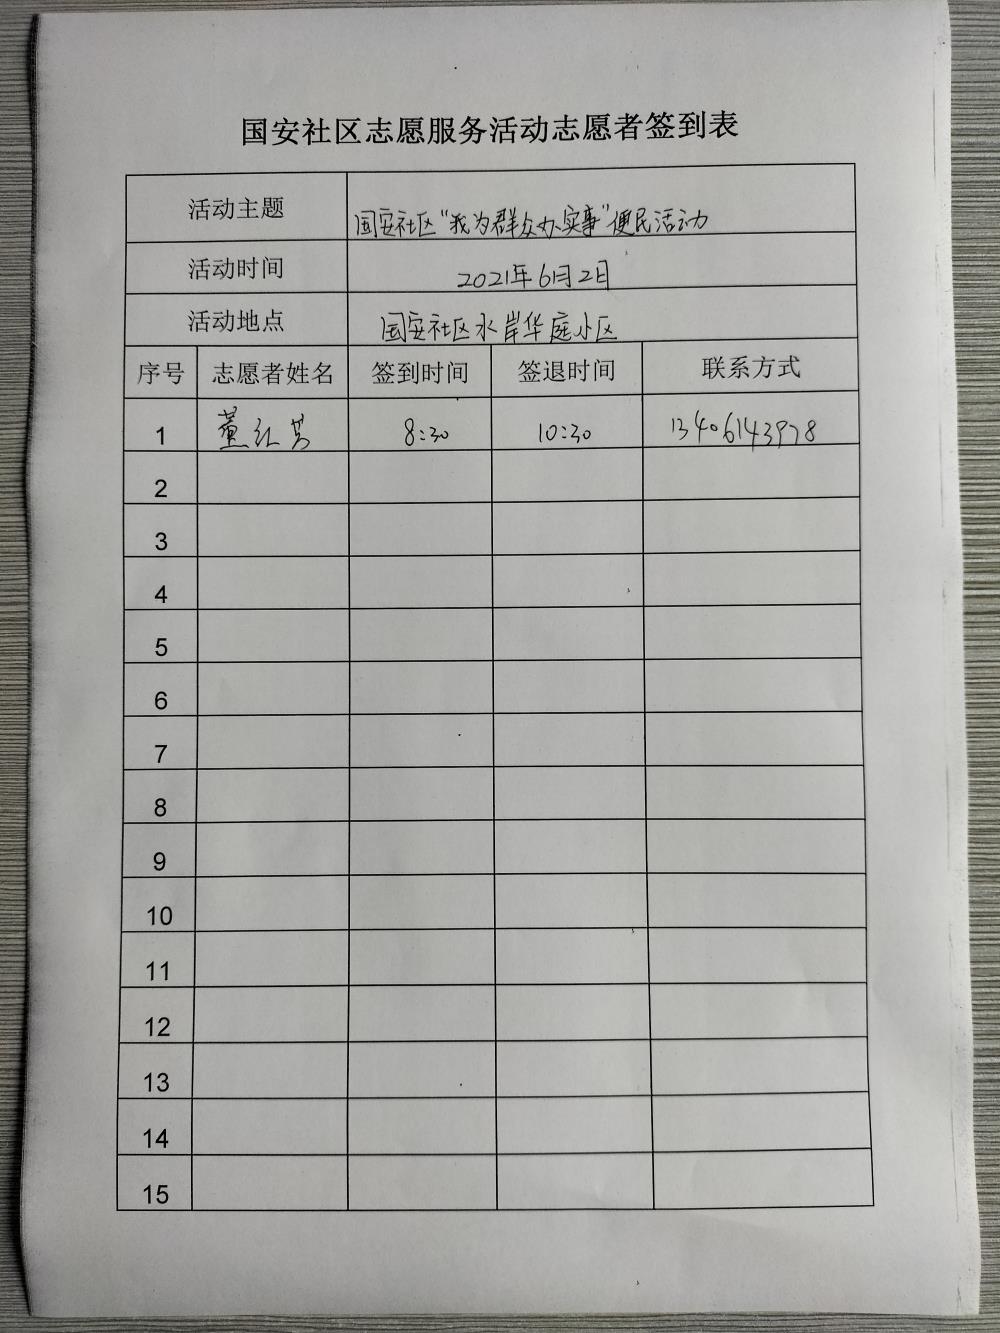 国安社区志愿服务活动志愿者签到表
活动主题 国安社区“我为群众办实事”便民活动
活动时间 2021年6月2日
活动地点 国安社区水岸华庭小区
序号 志愿者姓名 签到时间 签退时间 联系方式
1 董红 8:30 10:30 13406143978
2
3
4
5
6
7
8
9
10
11
12
13
14
15